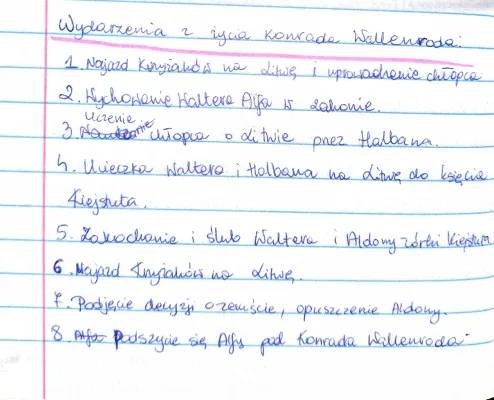 Wydarzenia z życia Konrada Wallenroda:
1. Najazd Krzyżaków na Litwę i uprowadzenie chłopca
2. Wychowanie Waltera Alfa w zakonie.
Uczenie
3. chłopca o Litwie przez Halbana.
4. Ucieczka Waltera i Halbana na Litwę do księcia
Kiejstuta.
5. Zakochanie i ślub Waltera i Aldony córki Kiejstuta
6. Najazd Krzyżaków na Litwę.
7. Podjęcie decyzji o zemście, opuszczenie Aldony.
8. Alfa Podszycie się Alfy pod Konrada Wallenroda